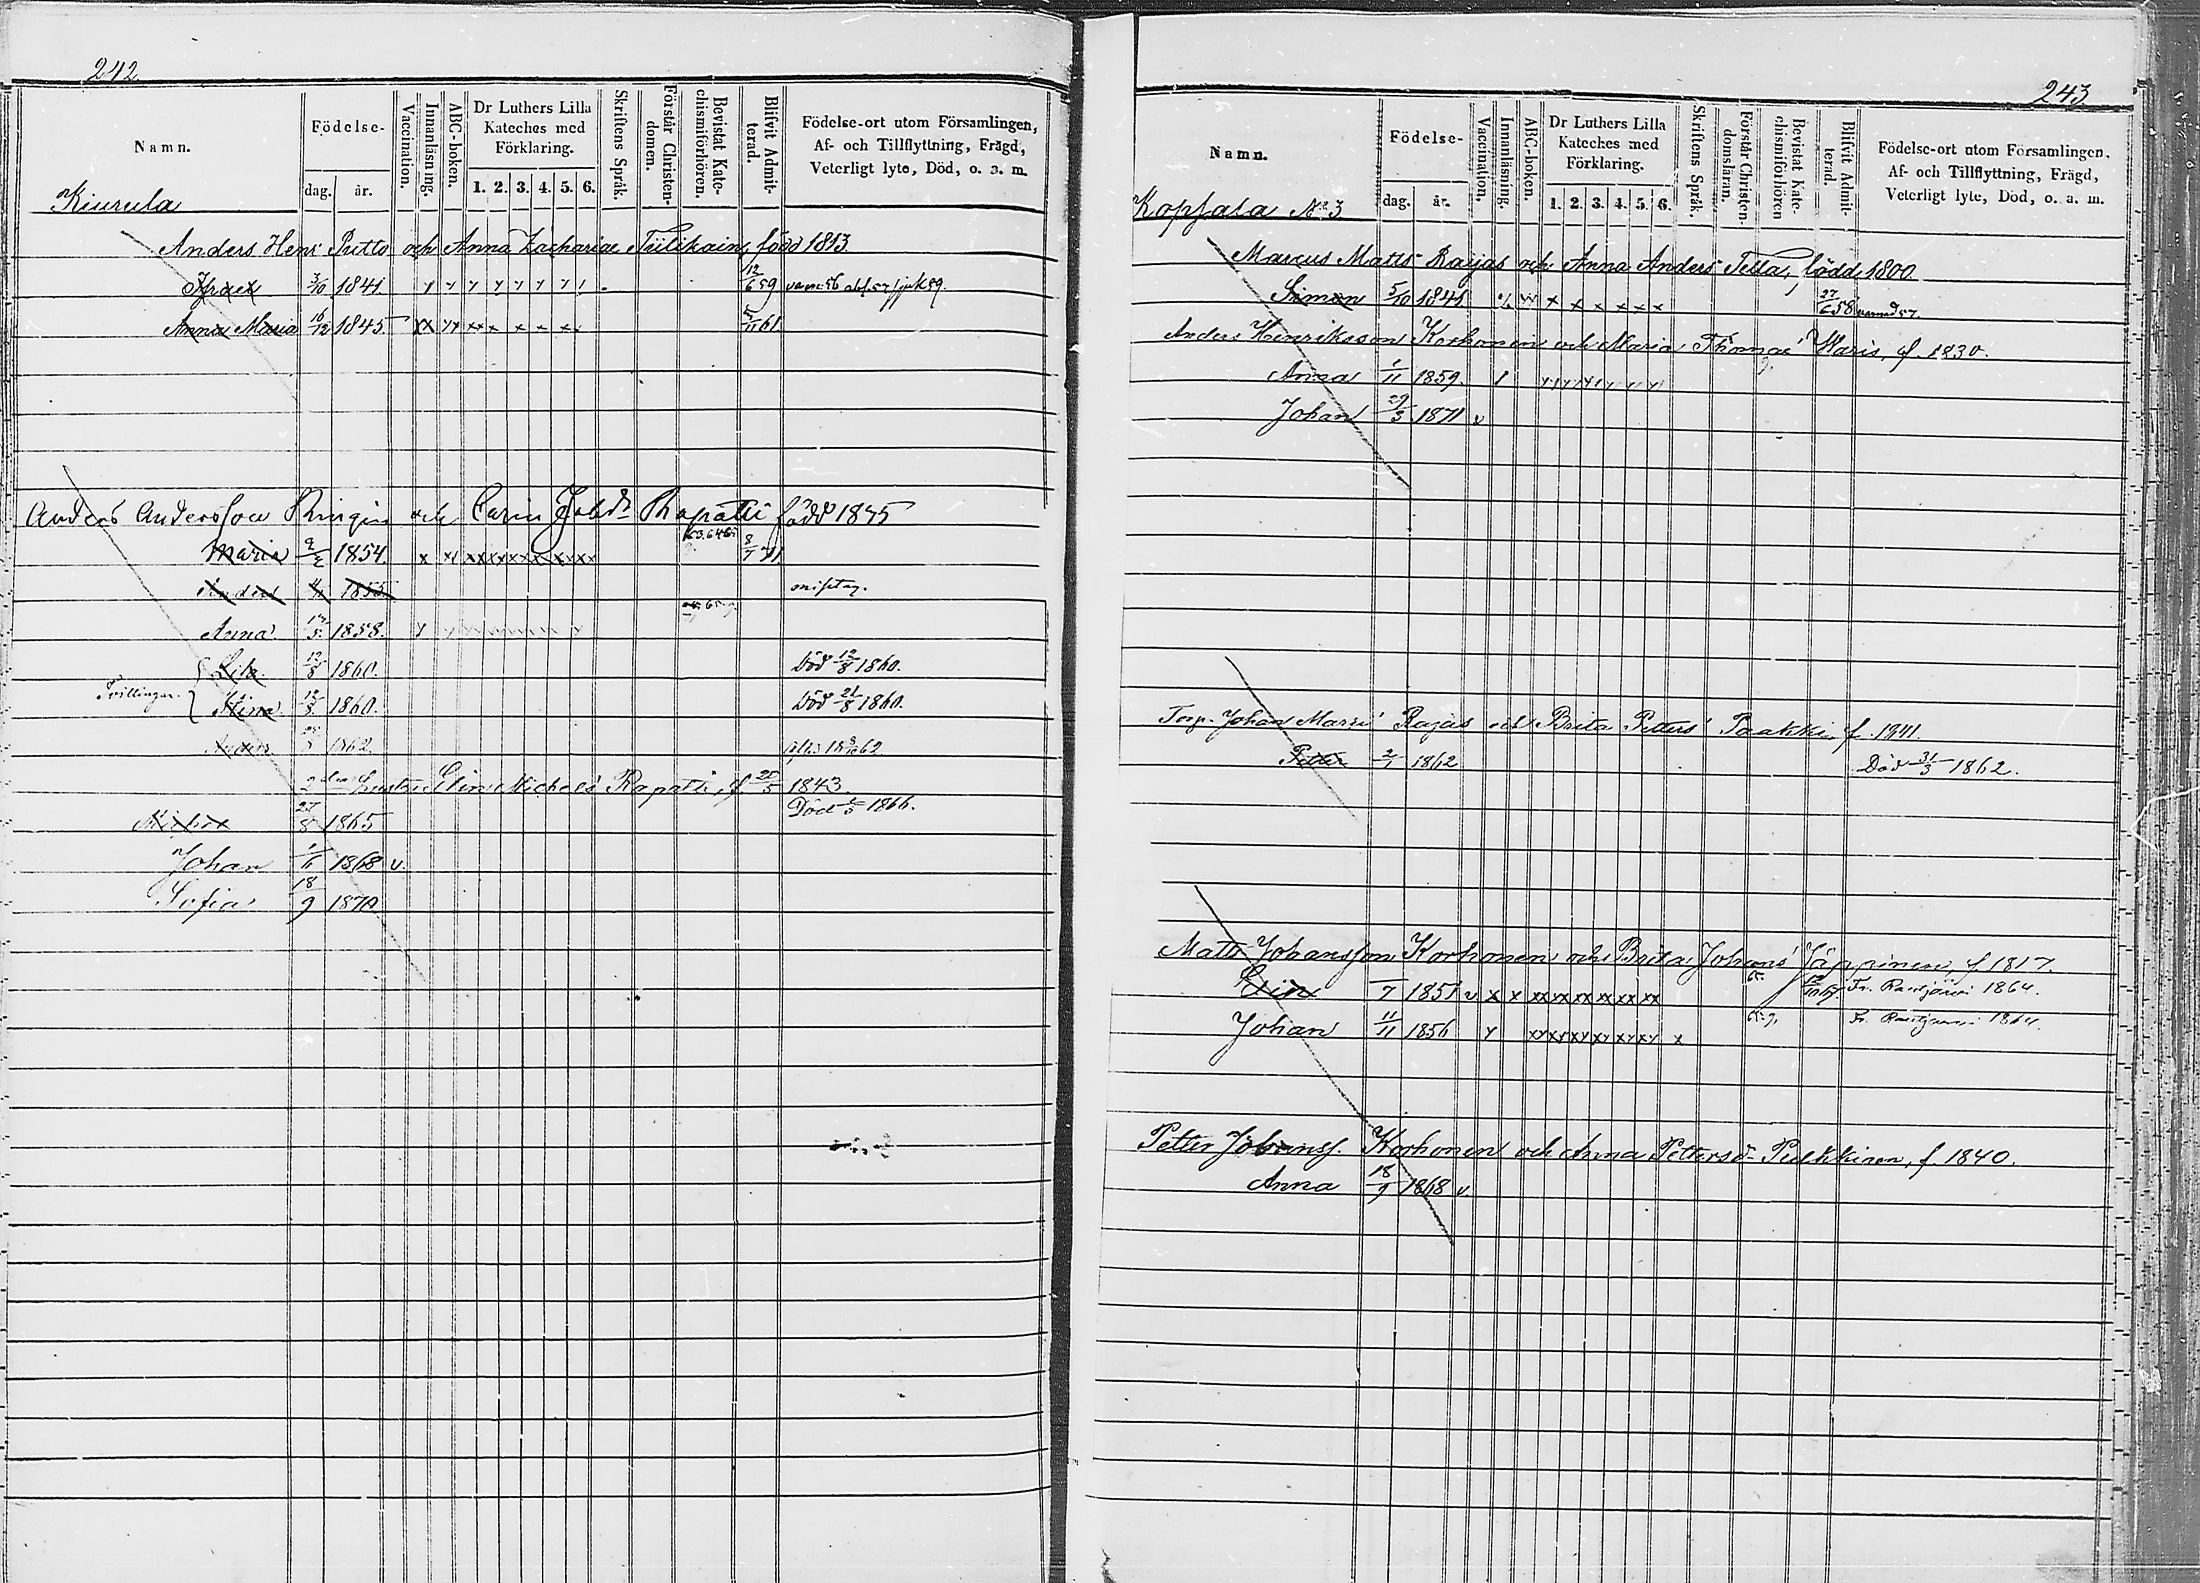 242
Namn. Födelse- dag. år. Vaccination. Innanläsning. ABC-boken. Dr Luthers Lilla Kateches med Förklaring. 1. 2. 3. 4. 5. 6. Skriftens Språk. Förstår Christendomen. Bevistat Katechismiförhören. Blifvit Admitterad. Födelse-ort utom Församlingen, Af- och Tillflyttning, Frägd, Veterligt lyte, Död, o. a. m.
Kiurula
Anders Henr Putto och Anna Zachariae Tiilikain, född 1813
3/10 1841 12/6 59
Anna Maria 16/12 1845 5/11 61
Anders Andersson Ringin och Carin Jobsdr Rapatti född 1845
Maria 1854. 8/7 71
Anders 1855 misstag.
Anna 1858.
Tvillingar. 12/8 1860. Död 12/8 1860.
Stina 12/8 1860. Död 21/8 1860.
Anders 1862
2dra Hustru Elin Michels Rapatti, f. 25/5 1843.
27/8 1865 Död 1866.
Johan 1868 v.
Sofia 18/9 1870
243
Namn. Födelse- dag. år. Vaccination. Innanläsning. ABC-boken. Dr Luthers Lilla Kateches med Förklaring. 1. 2. 3. 4. 5. 6. Skriftens Språk. Förstår Christendomsläran. Bevistat Katechismiförhören Blifvit Admitterad. Födelse-ort utom Församlingen, Af- och Tillflyttning, Frägd, Veterligt lyte, Död, o. a. m.
Kopsala No 3
Marcus Matts Rajas och Anna Anders Tella, född 1800
Simon 5/10 1841 27/6 58
Anders Henriksson Korhonen och Maria Thomae Haris, f. 1830.
Anna 1/11 1859.
Johan 29/3 1871 v
Torp. Johan Marci Rajas och Brita Petters Paakki, f. 1841.
Petter 2/1 1862 Död 31/3 1862.
Matts Johansson Korhonen och Brita Johans Jäppinen, f. 1817.
Elin 7 1851 v Fr. Rautjärvi 1864.
Johan 11/11 1856 Fr. Rautjärvi 1864.
Petter Johanss. Korhonen och Anna Pettersd. Pulkkinen, f. 1840.
Anna 18/9 1868 v